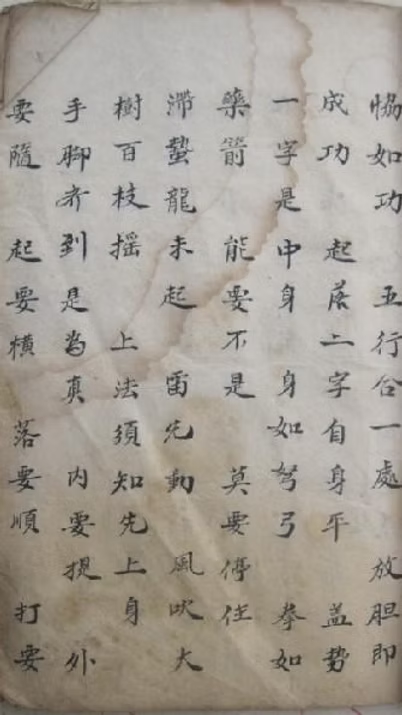 恊如功　五行合一處　放胆即
成功　起落二字自身平　盖势
一字是中身　身如弩弓　拳如
藥箭　能要不是　莫要停住
滞蟄龍未起　雷先動　風吹大
樹百枝摇　上法須知先上身
手脚齐到是為真　内要提　外
要隨　起要横　落要順　打要